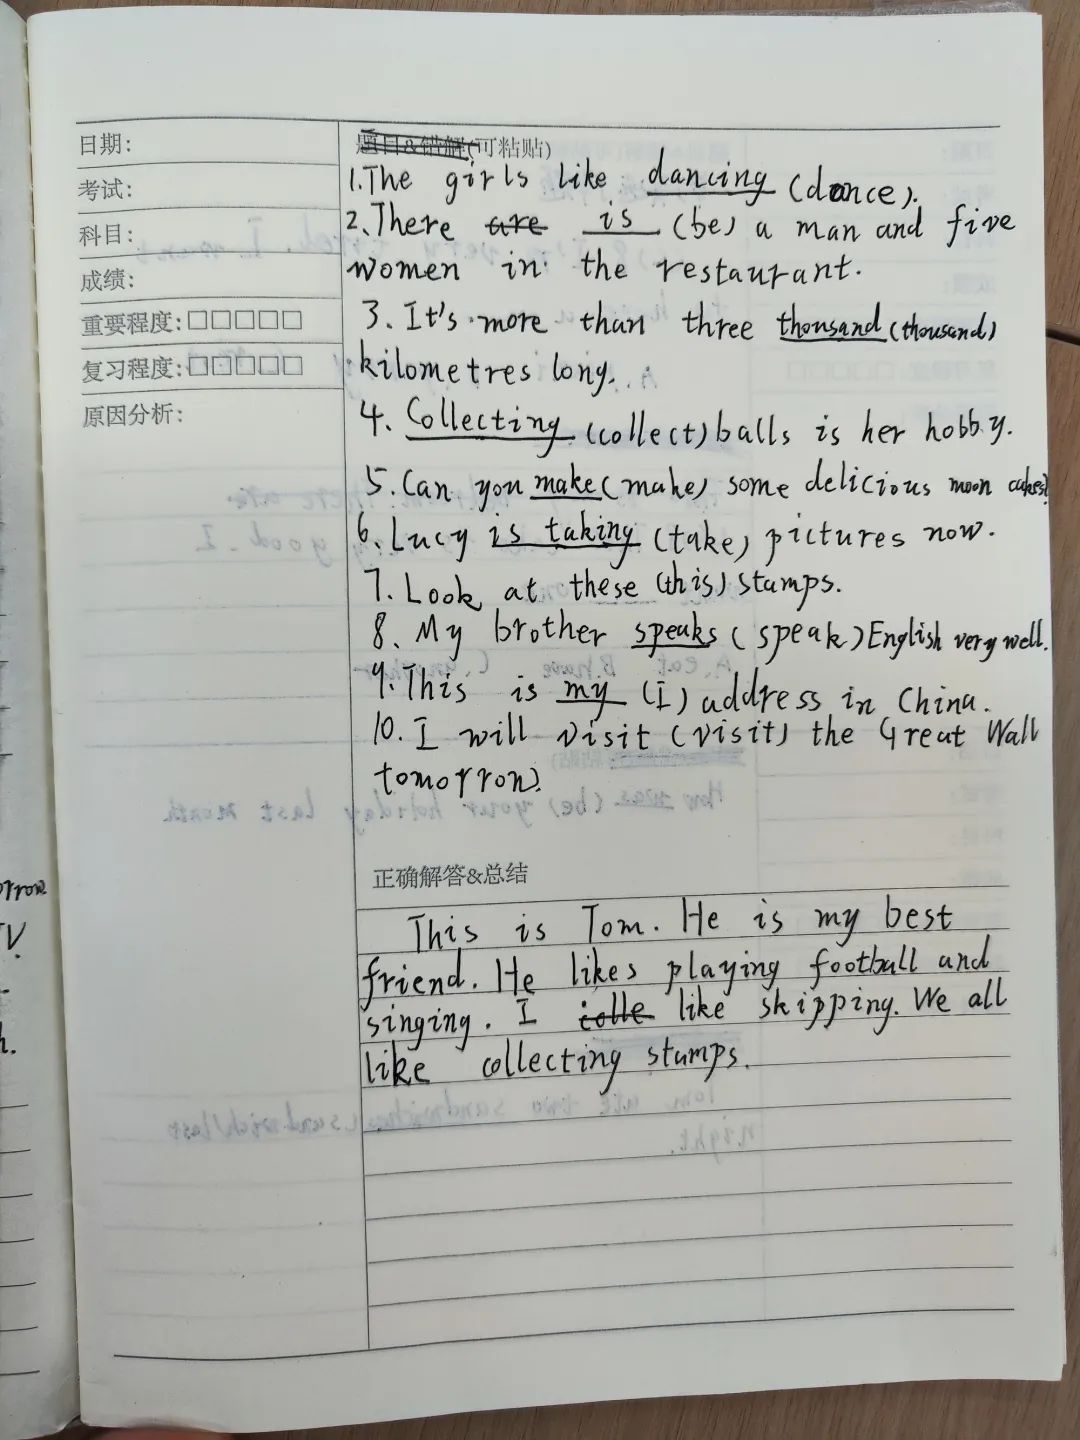 日期:
考试:
科目:
成绩:
重要程度:□□□□□
复习程度:□□□□□
原因分析:
题目&错解(可粘贴)
1.The girls like dancing (dance).
2.There are is (be) a man and five
women in the restaurant.
3. It's more than three thousand (thousand)
kilometres long.
4. Collecting (collect) balls is her hobby.
5. Can you make (make) some delicious moon cakes?
6. Lucy is taking (take) pictures now.
7. Look at these (this) stamps.
8. My brother speaks (speak) English very well.
9. This is my (I) address in China.
10. I will visit (visit) the Great Wall
tomorrow.
正确解答&总结
This is Tom. He is my best
friend. He likes playing football and
singing. I like skipping. We all
like collecting stamps.
orrow
V.
h.